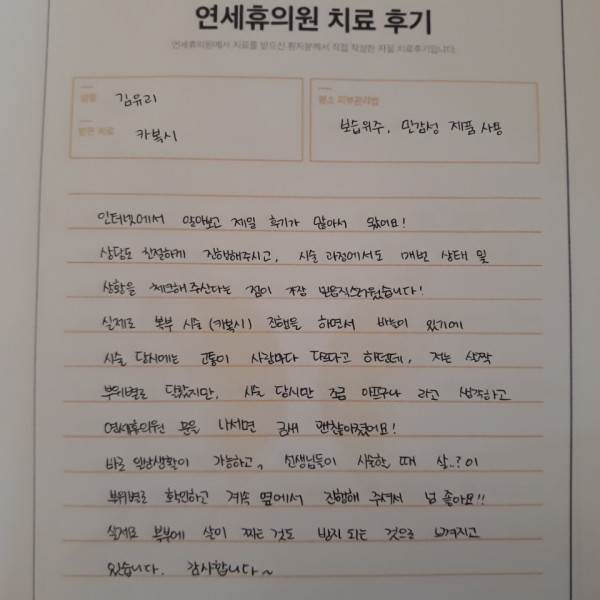 연세휴의원 치료 후기
연세휴의원에서 치료를 받으신 환자분께서 직접 작성한 자필 치료후기입니다.
성명 김유리
받은 치료 카복시
평소 피부관리법
보습위주, 민감성 제품 사용
인터넷에서 알아보고 제일 후기가 많아서 왔어요!
상담도 친절하게 진행해주시고, 시술 과정에서도 매번 상태 및
상황을 체크해 주신다는 점이 가장 믿음직스러웠습니다!
실제로 복부 시술(카복시) 진행을 하면서 바늘이 있기에
시술 당시에는 고통이 사람마다 다르다고 하던데, 저는 살짝
부위별로 달랐지만, 시술 당시만 조금 아프구나 라고 생각하고
연세휴의원 문을 나서면 금새 괜찮아졌어요!
바로 일상생활이 가능하고, 선생님들이 시술할 때 살..?이
부위별로 확인하고 계속 옆에서 진행해 주셔서 넘 좋아요!!
실제로 복부에 살이 찌는 것도 방지 되는 것으로 느껴지고
있습니다. 감사합니다~